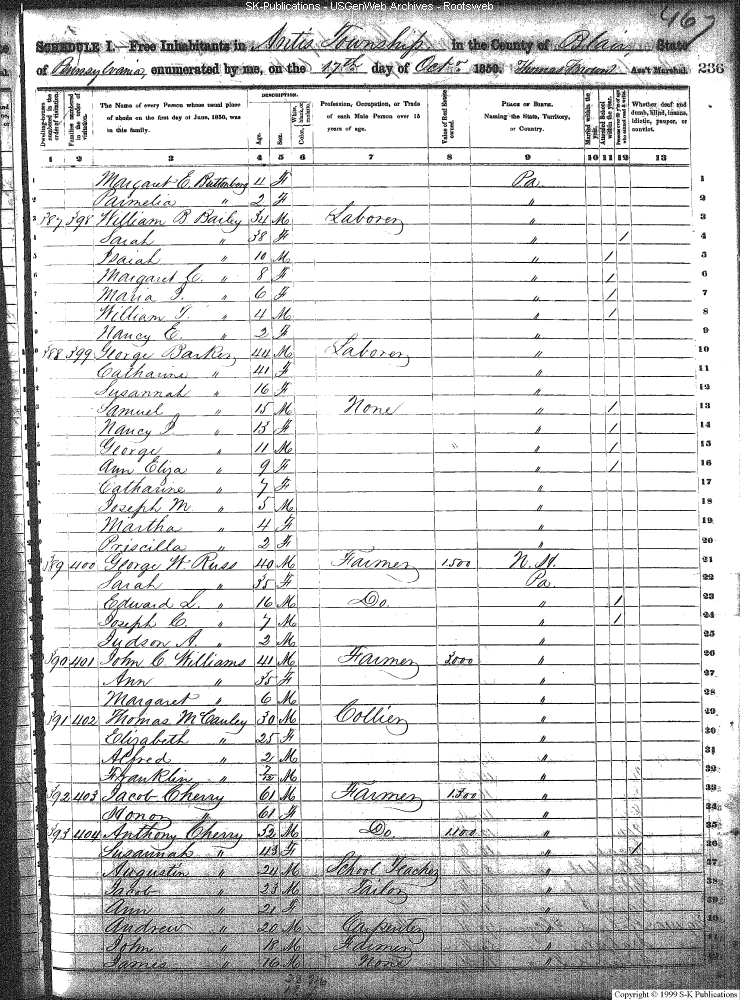 SK-Publications - USGenWeb Archives - Rootsweb
467
SCHEDULE I.—Free Inhabitants in Antis Township in the County of Blair State
of Pennsylvania enumerated by me, on the 17th day of Octr. 1850. Thomas Ass't Marshal. 236
DESCRIPTION.
Dwelling-houses numbered in the order of visitation.
Families numbered in the order of visitation.
The Name of every Person whose usual place of abode on the first day of June, 1850, was in this family.
Age.
Sex.
Color, White, black, or mulatto.
Profession, Occupation, or Trade of each Male Person over 15 years of age.
Value of Real Estate owned.
PLACE OF BIRTH. Naming the State, Territory, or Country.
Married within the year.
Attended School within the year.
Persons over 20 y'rs of age who cannot read & write.
Whether deaf and dumb, blind, insane, idiotic, pauper, or convict.
1 2 3 4 5 6 7 8 9 10 11 12 13
Margaret E. 11 F Pa 1
Parmelia " 2 F " 2
387 398 William B. Baily 34 M Laborer " 3
Sarah " 38 F " / 4
Isaiah " 10 M " / 5
Margaret C. " 8 F " / 6
Maria J. " 6 F " / 7
William T. " 4 M " / 8
Nancy E. " 2 F " 9
388 399 George Barker 44 M Laborer " 10
Catharine " 41 F " 11
Susannah " 16 F " 12
Samuel " 15 M None " / 13
Nancy J. " 13 F " / 14
George " 11 M " / 15
Ann Eliza " 9 F " / 16
Catharine " 7 F " 17
Joseph M. " 5 M " 18
Martha " 4 F " 19
Priscilla " 2 F " 20
389 400 George W. Russ 40 M Farmer 1500 N. H. 21
Sarah " 35 F Pa 22
Edward L. " 16 M Do. " / 23
Joseph C. " 7 M " / 24
Judson A. " 2 M " 25
390 401 John C. Williams 41 M Farmer 3000 " 26
Ann " 35 F " 27
Margaret " 6 M " 28
391 402 Thomas McCauley 30 M Collier " 29
Elizabeth " 25 F "
Alfred " 2 M " 31
Franklin " M " 32
392 403 Jacob Cherry 61 M Farmer 1300 " 33
" 61 F " 34
393 404 Anthony Cherry 52 M Do. 1100 " 35
Susannah " 43 F " / 36
Augustin " 24 M School Teacher " 37
Jacob " 23 M Tailor " 38
Ann " 21 F " 39
Andrew " 20 M Carpenter " 40
John " 18 M Farmer " 41
James " 16 M None " 42
Copyright © 1999 S-K Publications